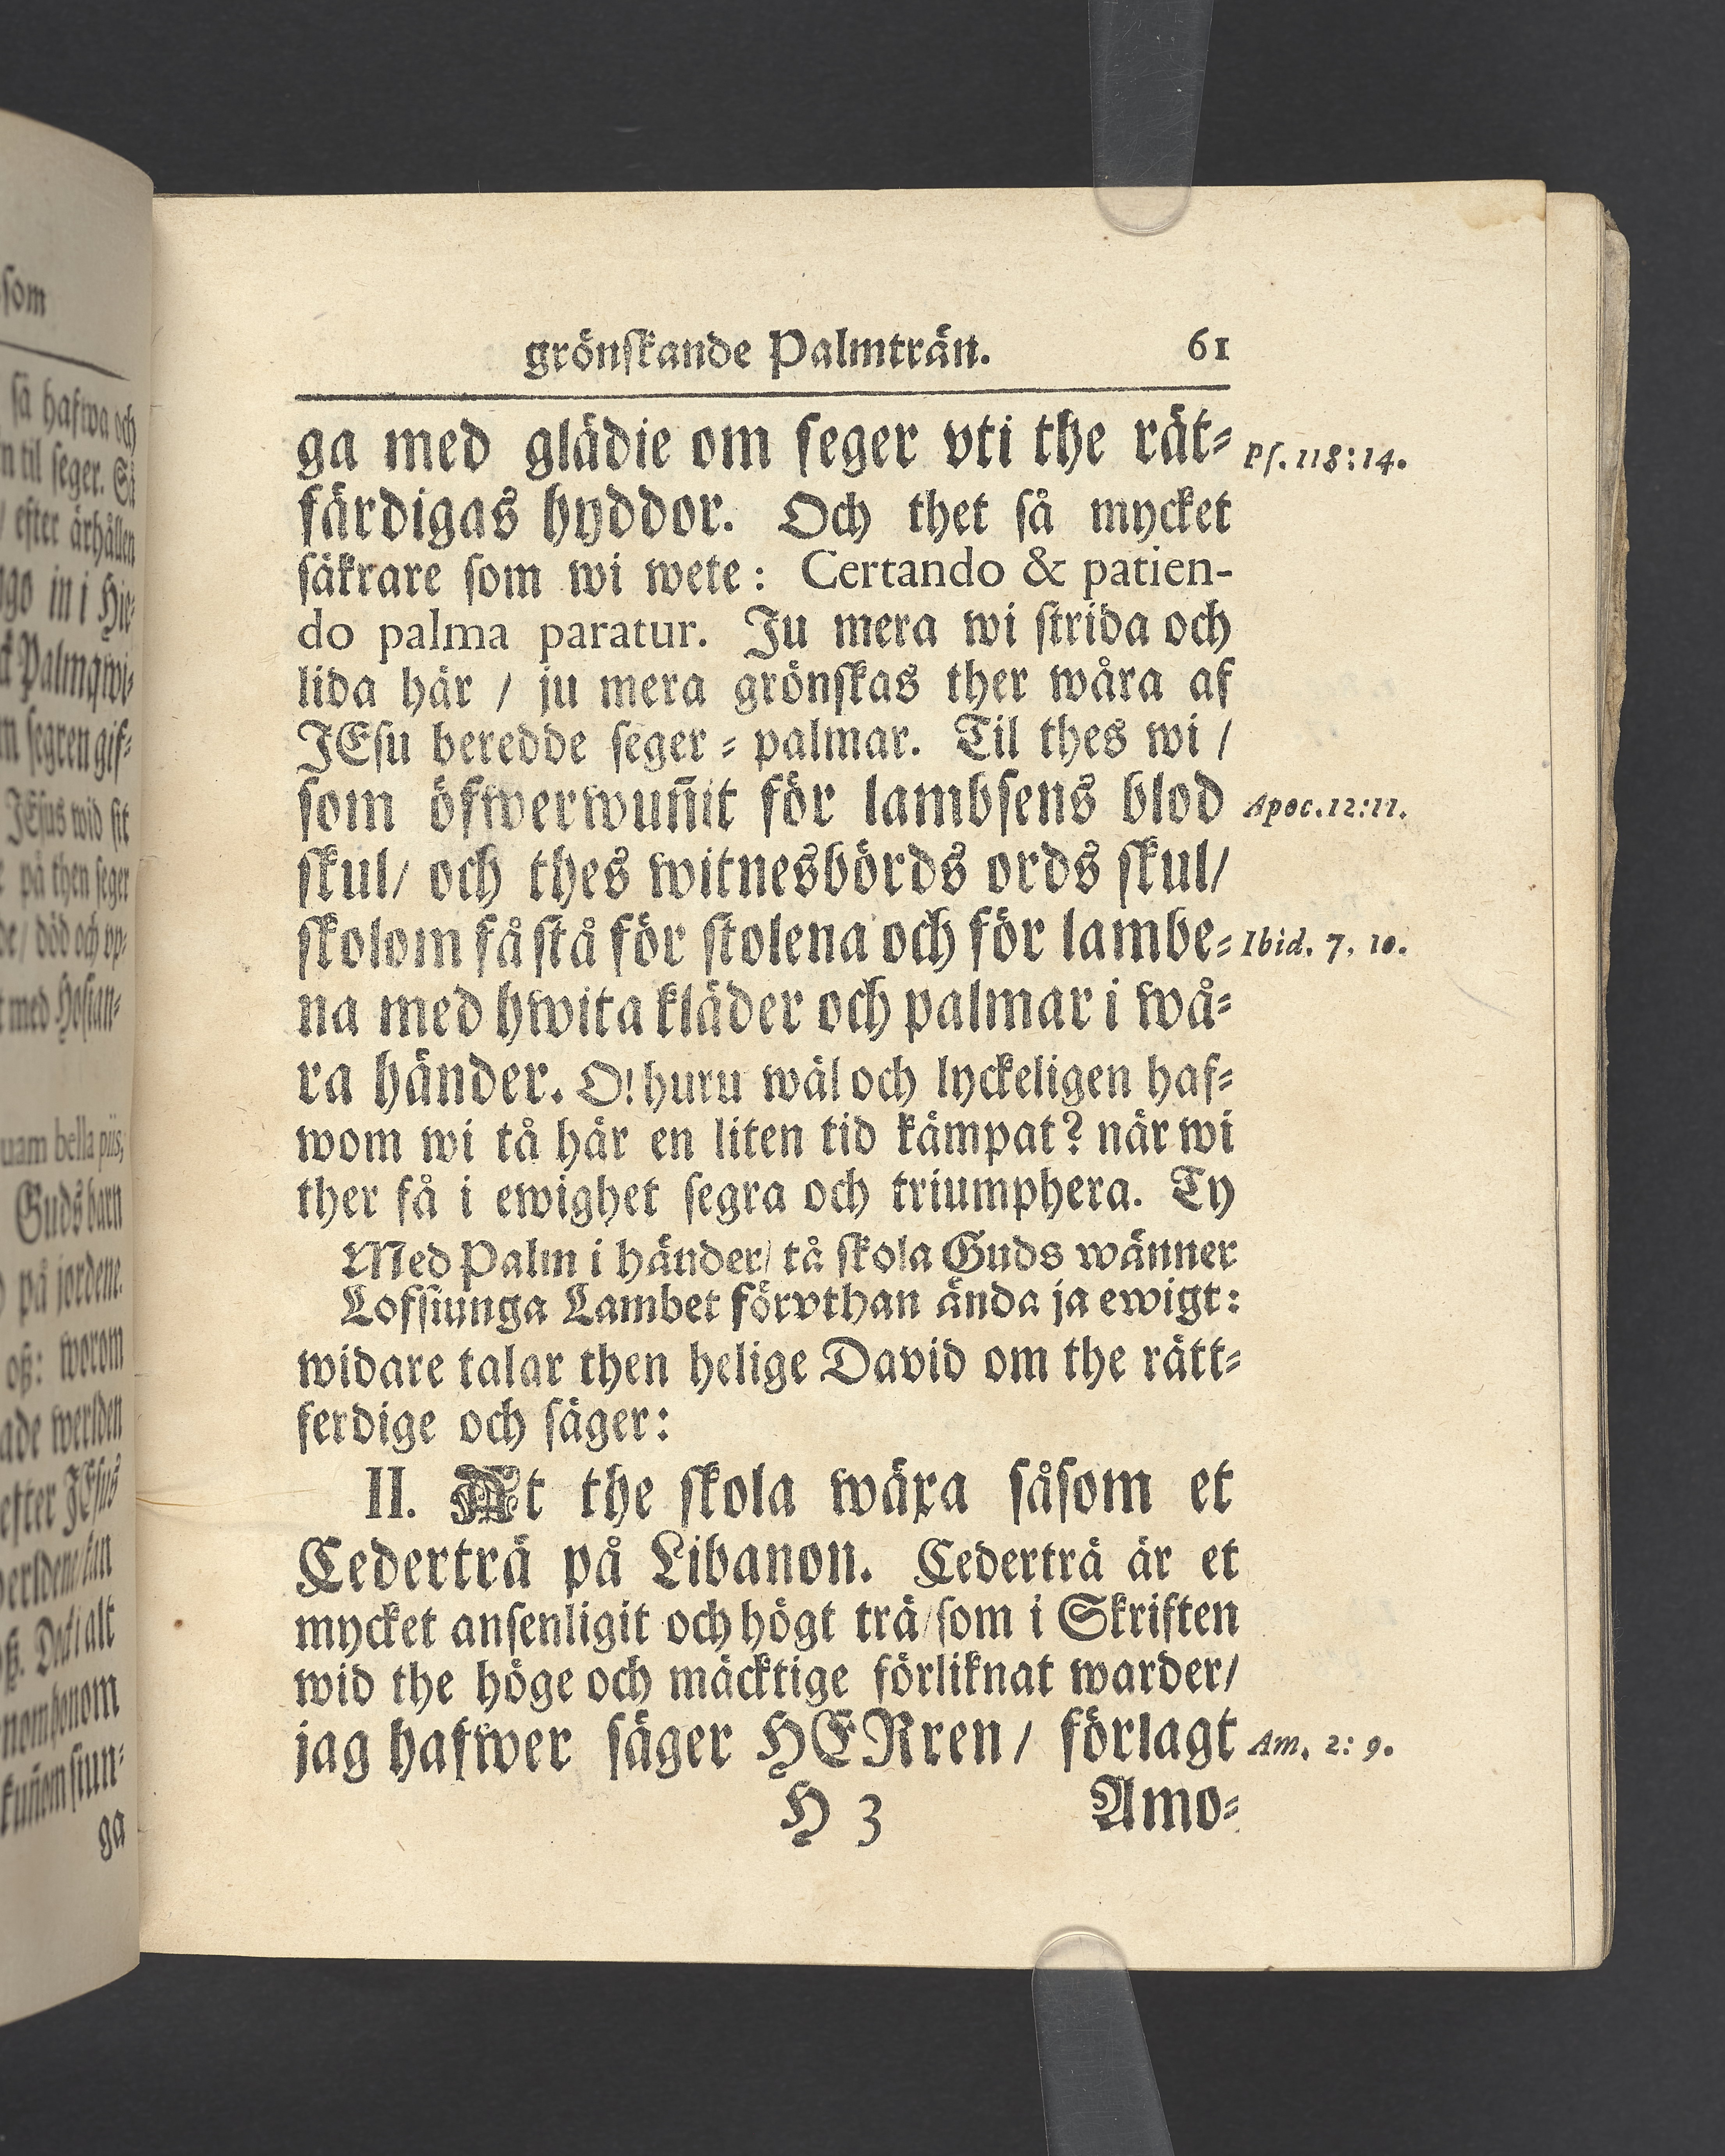 grönskande Palmträn. 61
ga med glädie om seger vti the rät= Ps. 118:14.
färdigas hyddor. Och thet så mycket
säkrare som wi wete: Certando & patien-
do palma paratur. Ju mera wi strida och
lida här / ju mera grönskas ther wåra af
JEsu beredde seger = palmar. Til thes wi /
som öfwerwun̄it för lambsens blod Apoc. 12:11.
skul/ och thes witnesbörds ords skul/
skolom få stå för stolena och för lambe= Ibid. 7, 10.
na med hwita kläder och palmar i wå=
ra händer. O! huru wäl och lyckeligen haf=
wom wi tå här en liten tid kämpat? när wi
ther få i ewighet segra och triumphera. Ty
Med Palm i händer/ tå skola Guds wänner
Lofsiunga Lambet förvthan ända ja ewigt:
widare talar then helige David om the rätt=
ferdige och säger:
II. At the skola wäxa såsom et
Cederträ på Libanon. Cederträ är et
mycket ansenligit och högt trä/ som i Skriften
wid the höge och mäcktige förliknat warder/
jag hafwer säger HERren / förlagt Am. 2: 9.
H 3 Amo=
som
så hafwa och
til seger. Så
/ efter ärhållen
in i Hie=
Palmqwi=
segren gif=
JEsus wid sit
på then seger
/ död och vp=
med Hosian=
bella piis;
Guds barn
på jordene.
oß: worom
werlden
efter JEsus
alt
siun=
ga